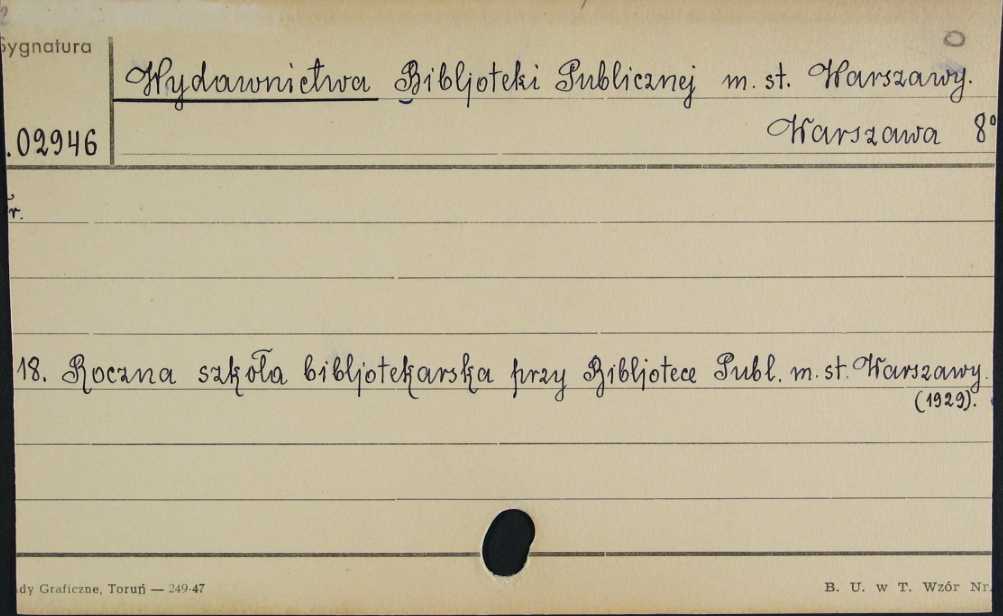 Sygnatura
Wydawnictwa Bibljoteki Publicznej m. st. Warszawy.
.02946
Warszawa 8°
r.
18. Roczna szkoła bibljotekarska przy Bibljotece Publ. m. st. Warszawy.
(1929).
dy Graficzne, Toruń — 249-47
B. U. w T. Wzór Nr.